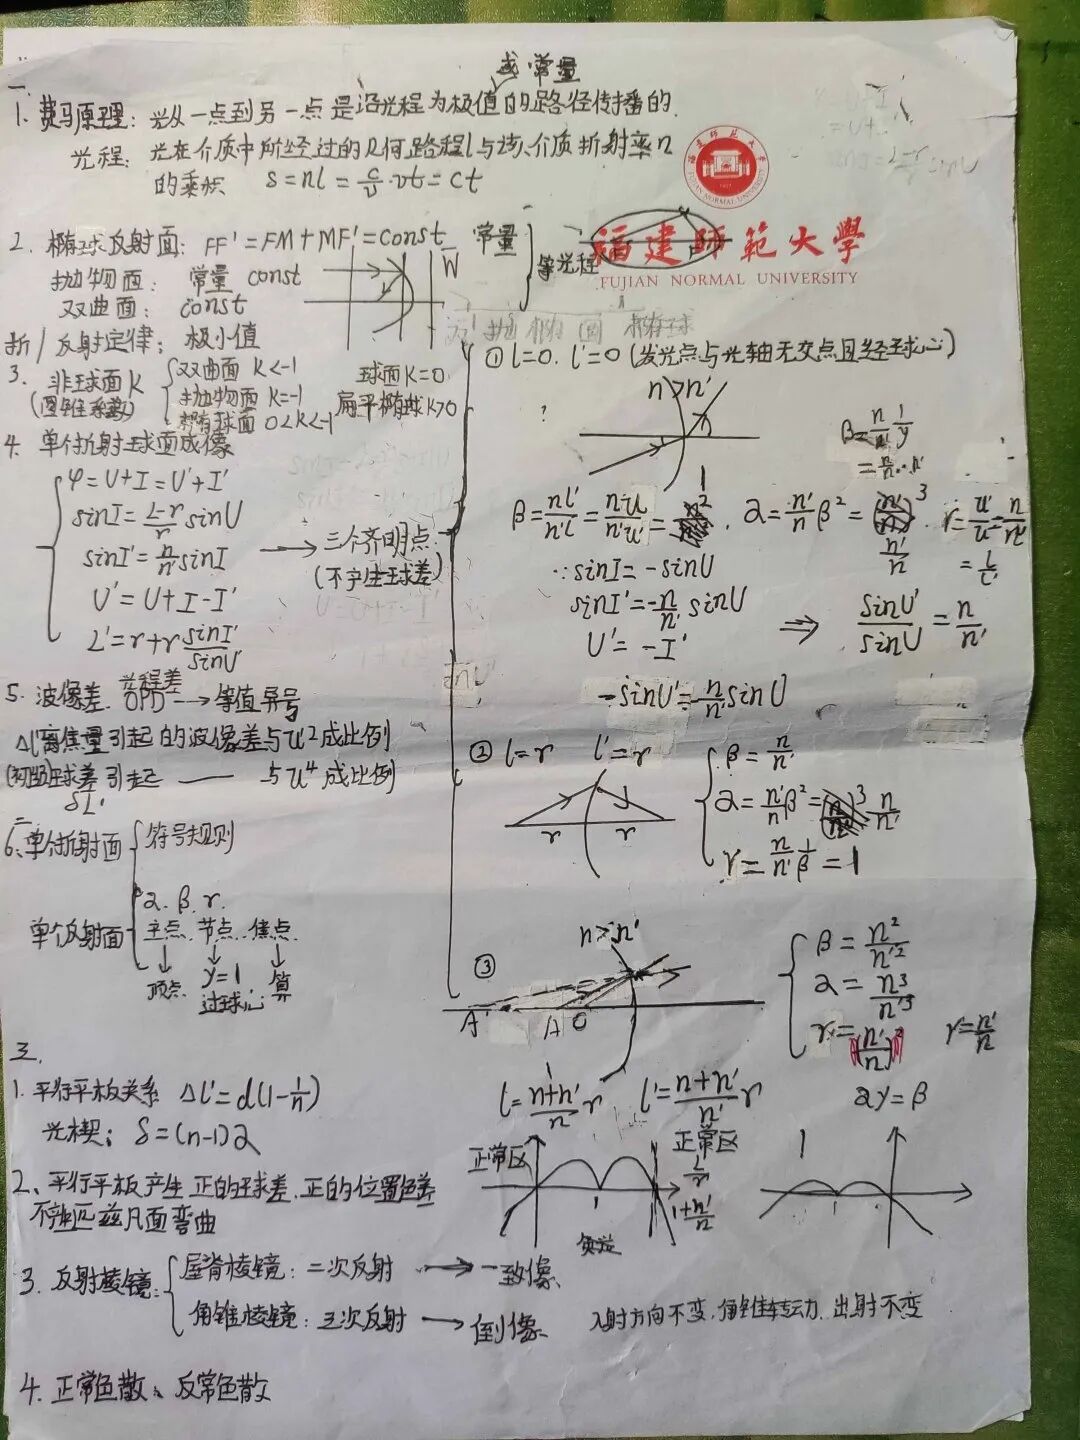 一
或常量
1. 费马原理：光从一点到另一点是沿光程为极值的路径传播的.
光程：光在介质中所经过的几何路程l与该介质折射率n
的乘积 s=nl=c/v·vt=ct
福建师范大学
FUJIAN NORMAL UNIVERSITY
2. 椭球反射面：FF'=FM+MF'=const 常量
抛物面： 常量 const
双曲面： const
W
等光程
折/反射定律：极小值
3. 非球面K
(圆锥系数)
双曲面 K<-1
抛物面 K=-1
椭球面 0<K<-1
球面K=0
扁平椭球K>0
4. 单个折射球面成像
φ=U+I=U'+I'
sinI=(L-r)/r sinU
sinI'=n/n' sinI
U'=U+I-I'
L'=r+r sinI'/sinU'
三个齐明点
(不产生球差)
① l=0. l'=0 (发光点与光轴无交点且经球心)
n>n'
β=nl'/n'l=nu/n'u'= . α=n'/n β²= n'/n . γ=u'/u=n/n' =l/l'
∵sinI=-sinU
sinI'=-n/n' sinU
U'=-I'
⇒ sinU'/sinU=n/n'
-sinU'=-n/n' sinU
② l=r l'=r
r r
β=n/n'
α=n'/n β²= n/n'
γ=n/n' 1/β=1
③
n>n'
A' A O
β=n²/n'²
α=n³/n'³
γ=(n'/n)² γ=n'/n
l=(n+n')/n r l'=(n+n')/n' r αγ=β
5. 波像差. 光程差 OPD → 等值异号
Δl'离焦量引起的波像差与u²成比例
(初级)球差引起 —— 与u⁴成比例
δL'
二
6. 单个折射面
单个反射面
符号规则
α. β. γ.
主点. 节点. 焦点.
顶点 γ=1 算
过球心
三.
1. 平行平板关系 Δl'=d(1-1/n)
光楔：δ=(n-1)α
正常区 正常区
1
1
n/n'+1
2、平行平板产生正的球差.正的位置色差
不产生匹兹凡面弯曲
3. 反射棱镜：
屋脊棱镜：二次反射 → 一致像
角锥棱镜：三次反射 → 倒像 入射方向不变.角锥转动.出射不变
4. 正常色散、反常色散